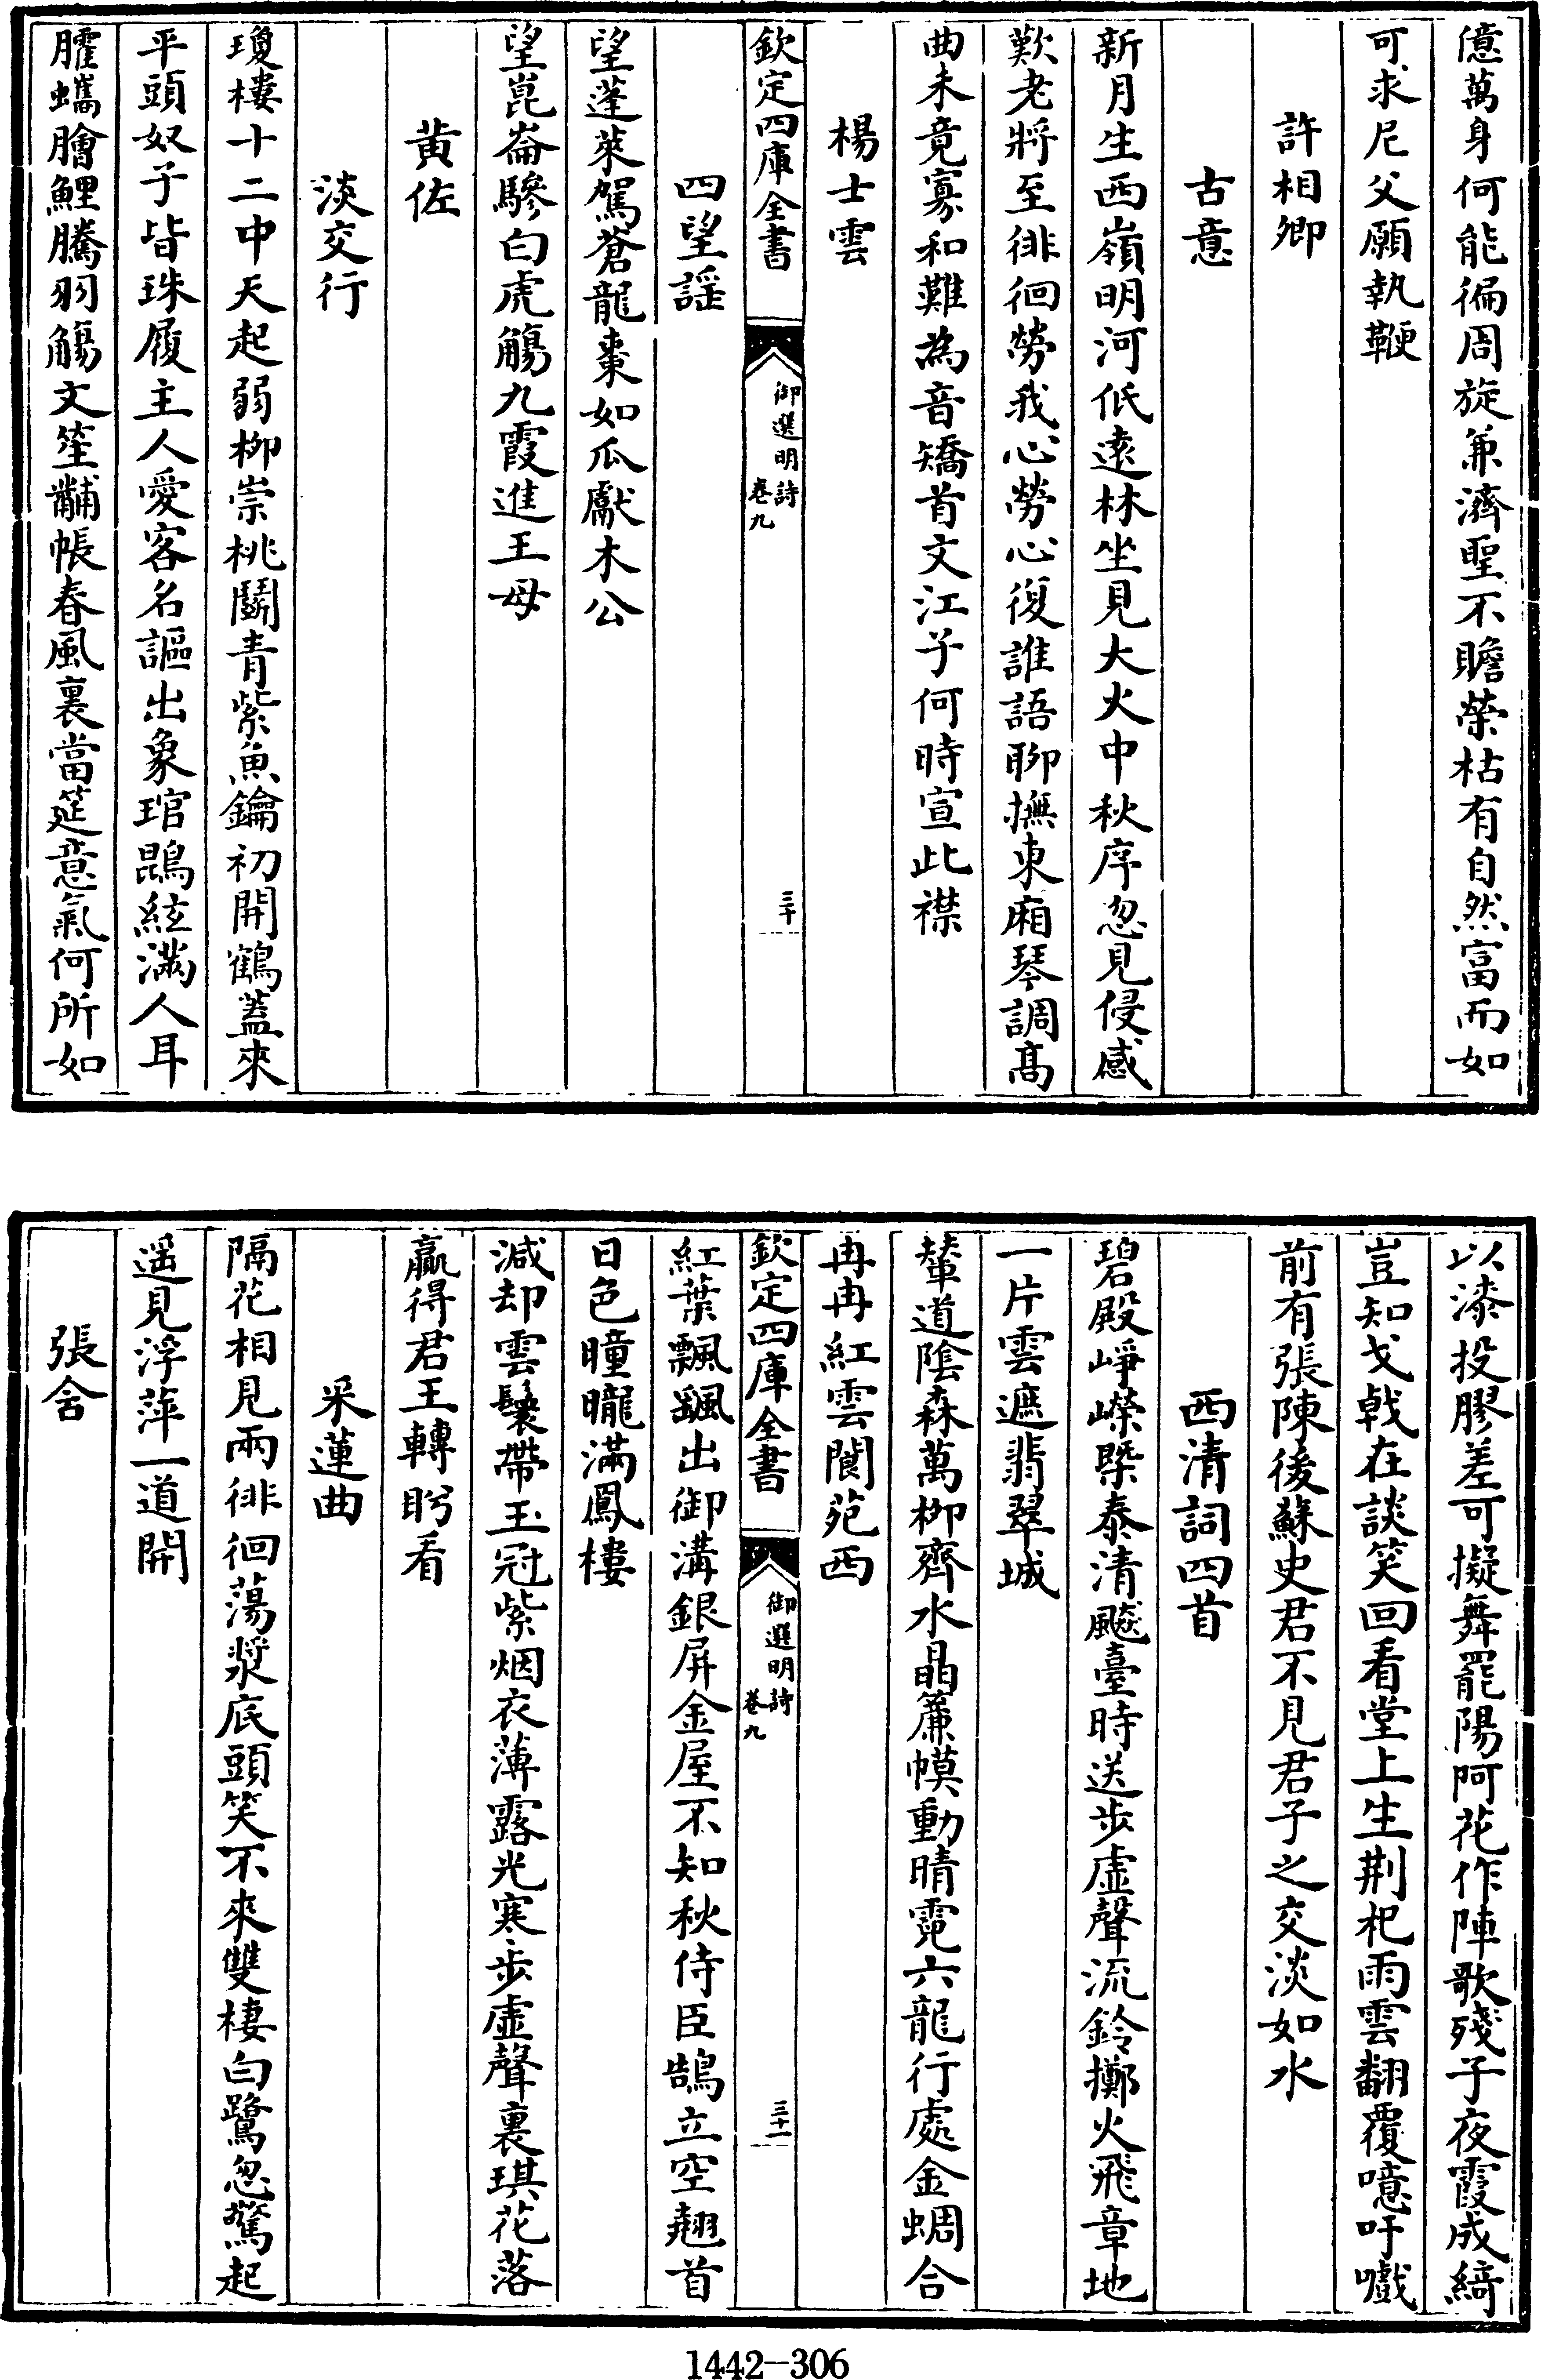 億萬身何能徧周旋兼濟聖不贍榮枯有自然富而如
可求尼父願執鞭
許相卿
古意
新月生西嶺明河低遠林坐見大火中秋序忽見侵感
歎老將至徘徊勞我心勞心復誰語聊撫東廂琴調髙
曲未竟寡和難為音矯首文江子何時宣此襟
楊士雲
欽定四庫全書
御選明詩
卷九
三十
四望謡
望蓬萊駕蒼龍棗如瓜獻木公
望崑崙驂白虎觴九霞進王母
黄佐
淡交行
瓊樓十二中天起弱栁崇桃鬭青紫魚鑰初開鶴蓋來
平頭奴子皆珠履主人愛客名謳出象琯鵾絃滿人耳
臛蠵膾鯉騰羽觴文笙黼帳春風裏當筵意氣何所如
以漆投膠差可擬舞罷陽阿花作陣歌殘子夜霞成綺
豈知戈戟在談笑回看堂上生荆杞雨雲翻覆噫吁嚱
前有張陳後蘇史君不見君子之交淡如水
西清詞四首
碧殿崢嶸槩泰清飈臺時送步虚聲流鈴擲火飛章地
一片雲遮翡翠城
輦道隂森萬栁齊水晶簾幙動晴霓六龍行處金蜩合
冉冉紅雲閬苑西
欽定四庫全書
御選明詩
卷九
三十一
紅葉飄颻出御溝銀屏金屋不知秋侍臣鵠立空翹首
日色曈曨滿鳳樓
減却雲鬟帶玉冠紫烟衣薄露光寒步虚聲裏琪花落
贏得君王轉盻看
采蓮曲
隔花相見兩徘徊蕩漿底頭笑不來雙棲白鷺忽驚起
遥見浮萍一道開
張含
1442-306